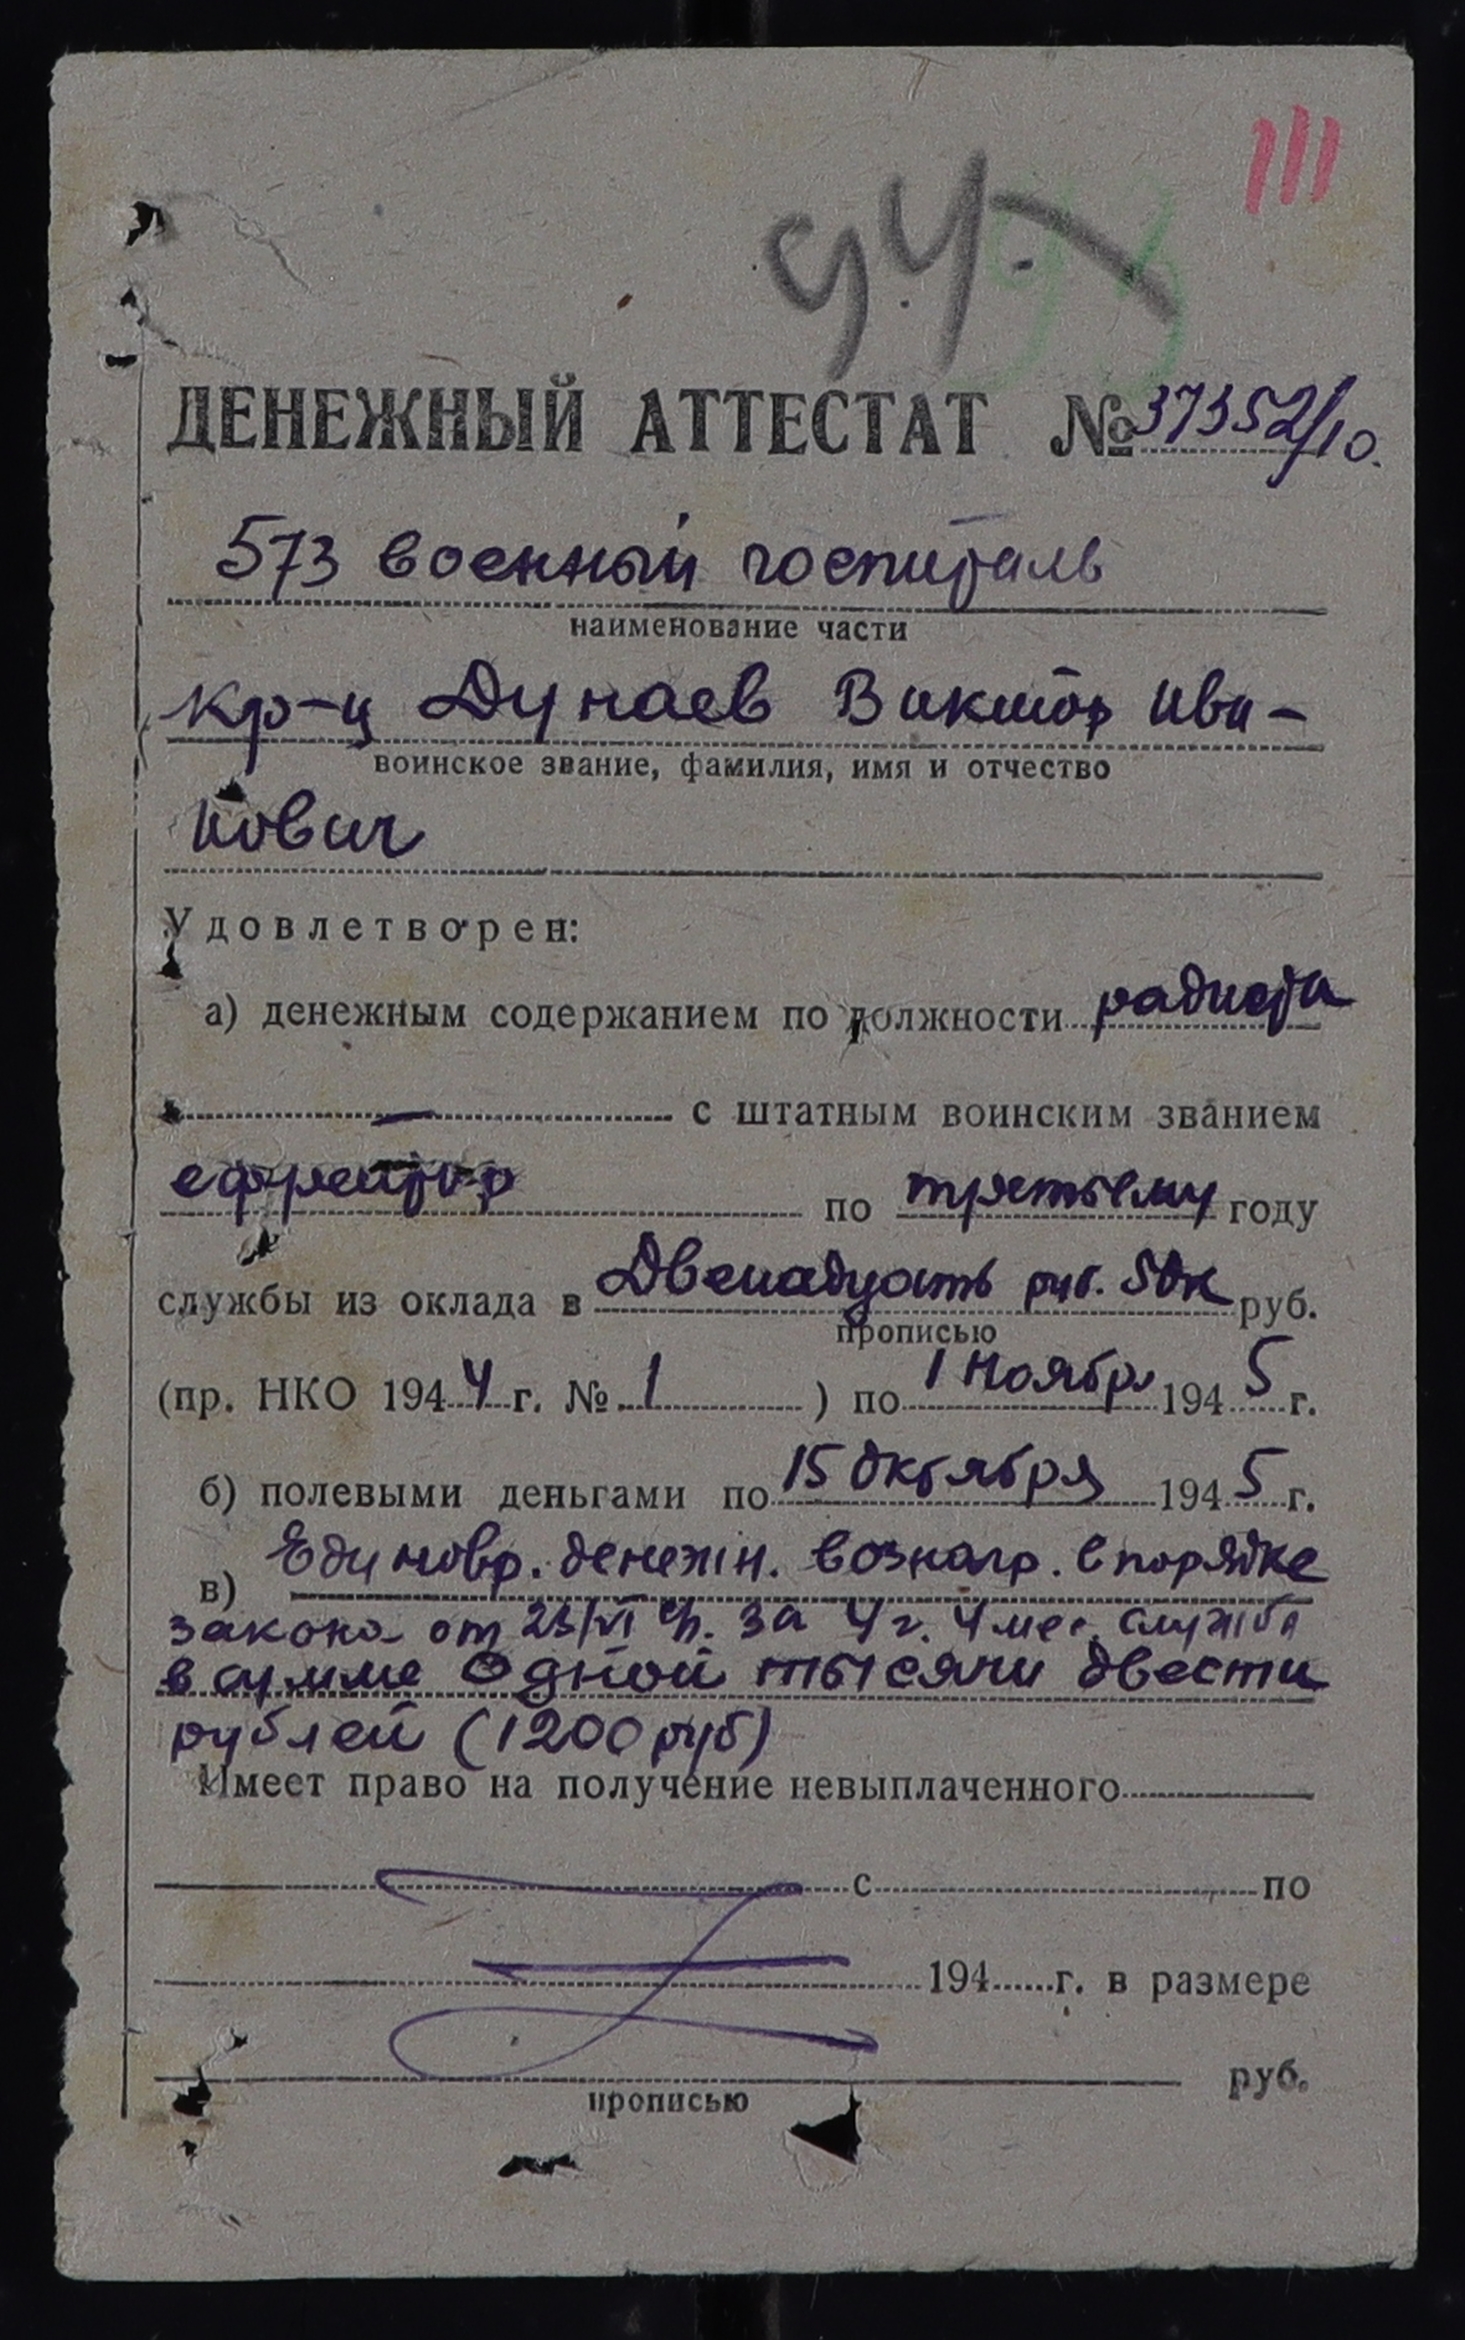 III
ДЕНЕЖНЫЙ АТТЕСТАТ № 37352/10.
573 военный госпиталь
наименование части
кр-ц Дунаев Виктор Ива-
воинское звание, фамилия, имя и отчество
нович
Удовлетворен:
а) денежным содержанием по должности радиста
— с штатным воинским званием
ефрейтор по третьему году
службы из оклада в Двенадцать руб. 50к руб.
прописью
(пр. НКО 1944 г. № 1 ) по 1 Ноября 1945 г.
б) полевыми деньгами по 15 октября 1945 г.
в) Единовр. денежн. вознагр. в порядке
закона от 23/VI за 4 г. 4 мес. службы
в сумме Одной тысячи двести
рублей (1200 руб)
Имеет право на получение невыплаченного
с по
194 г. в размере
руб.
прописью